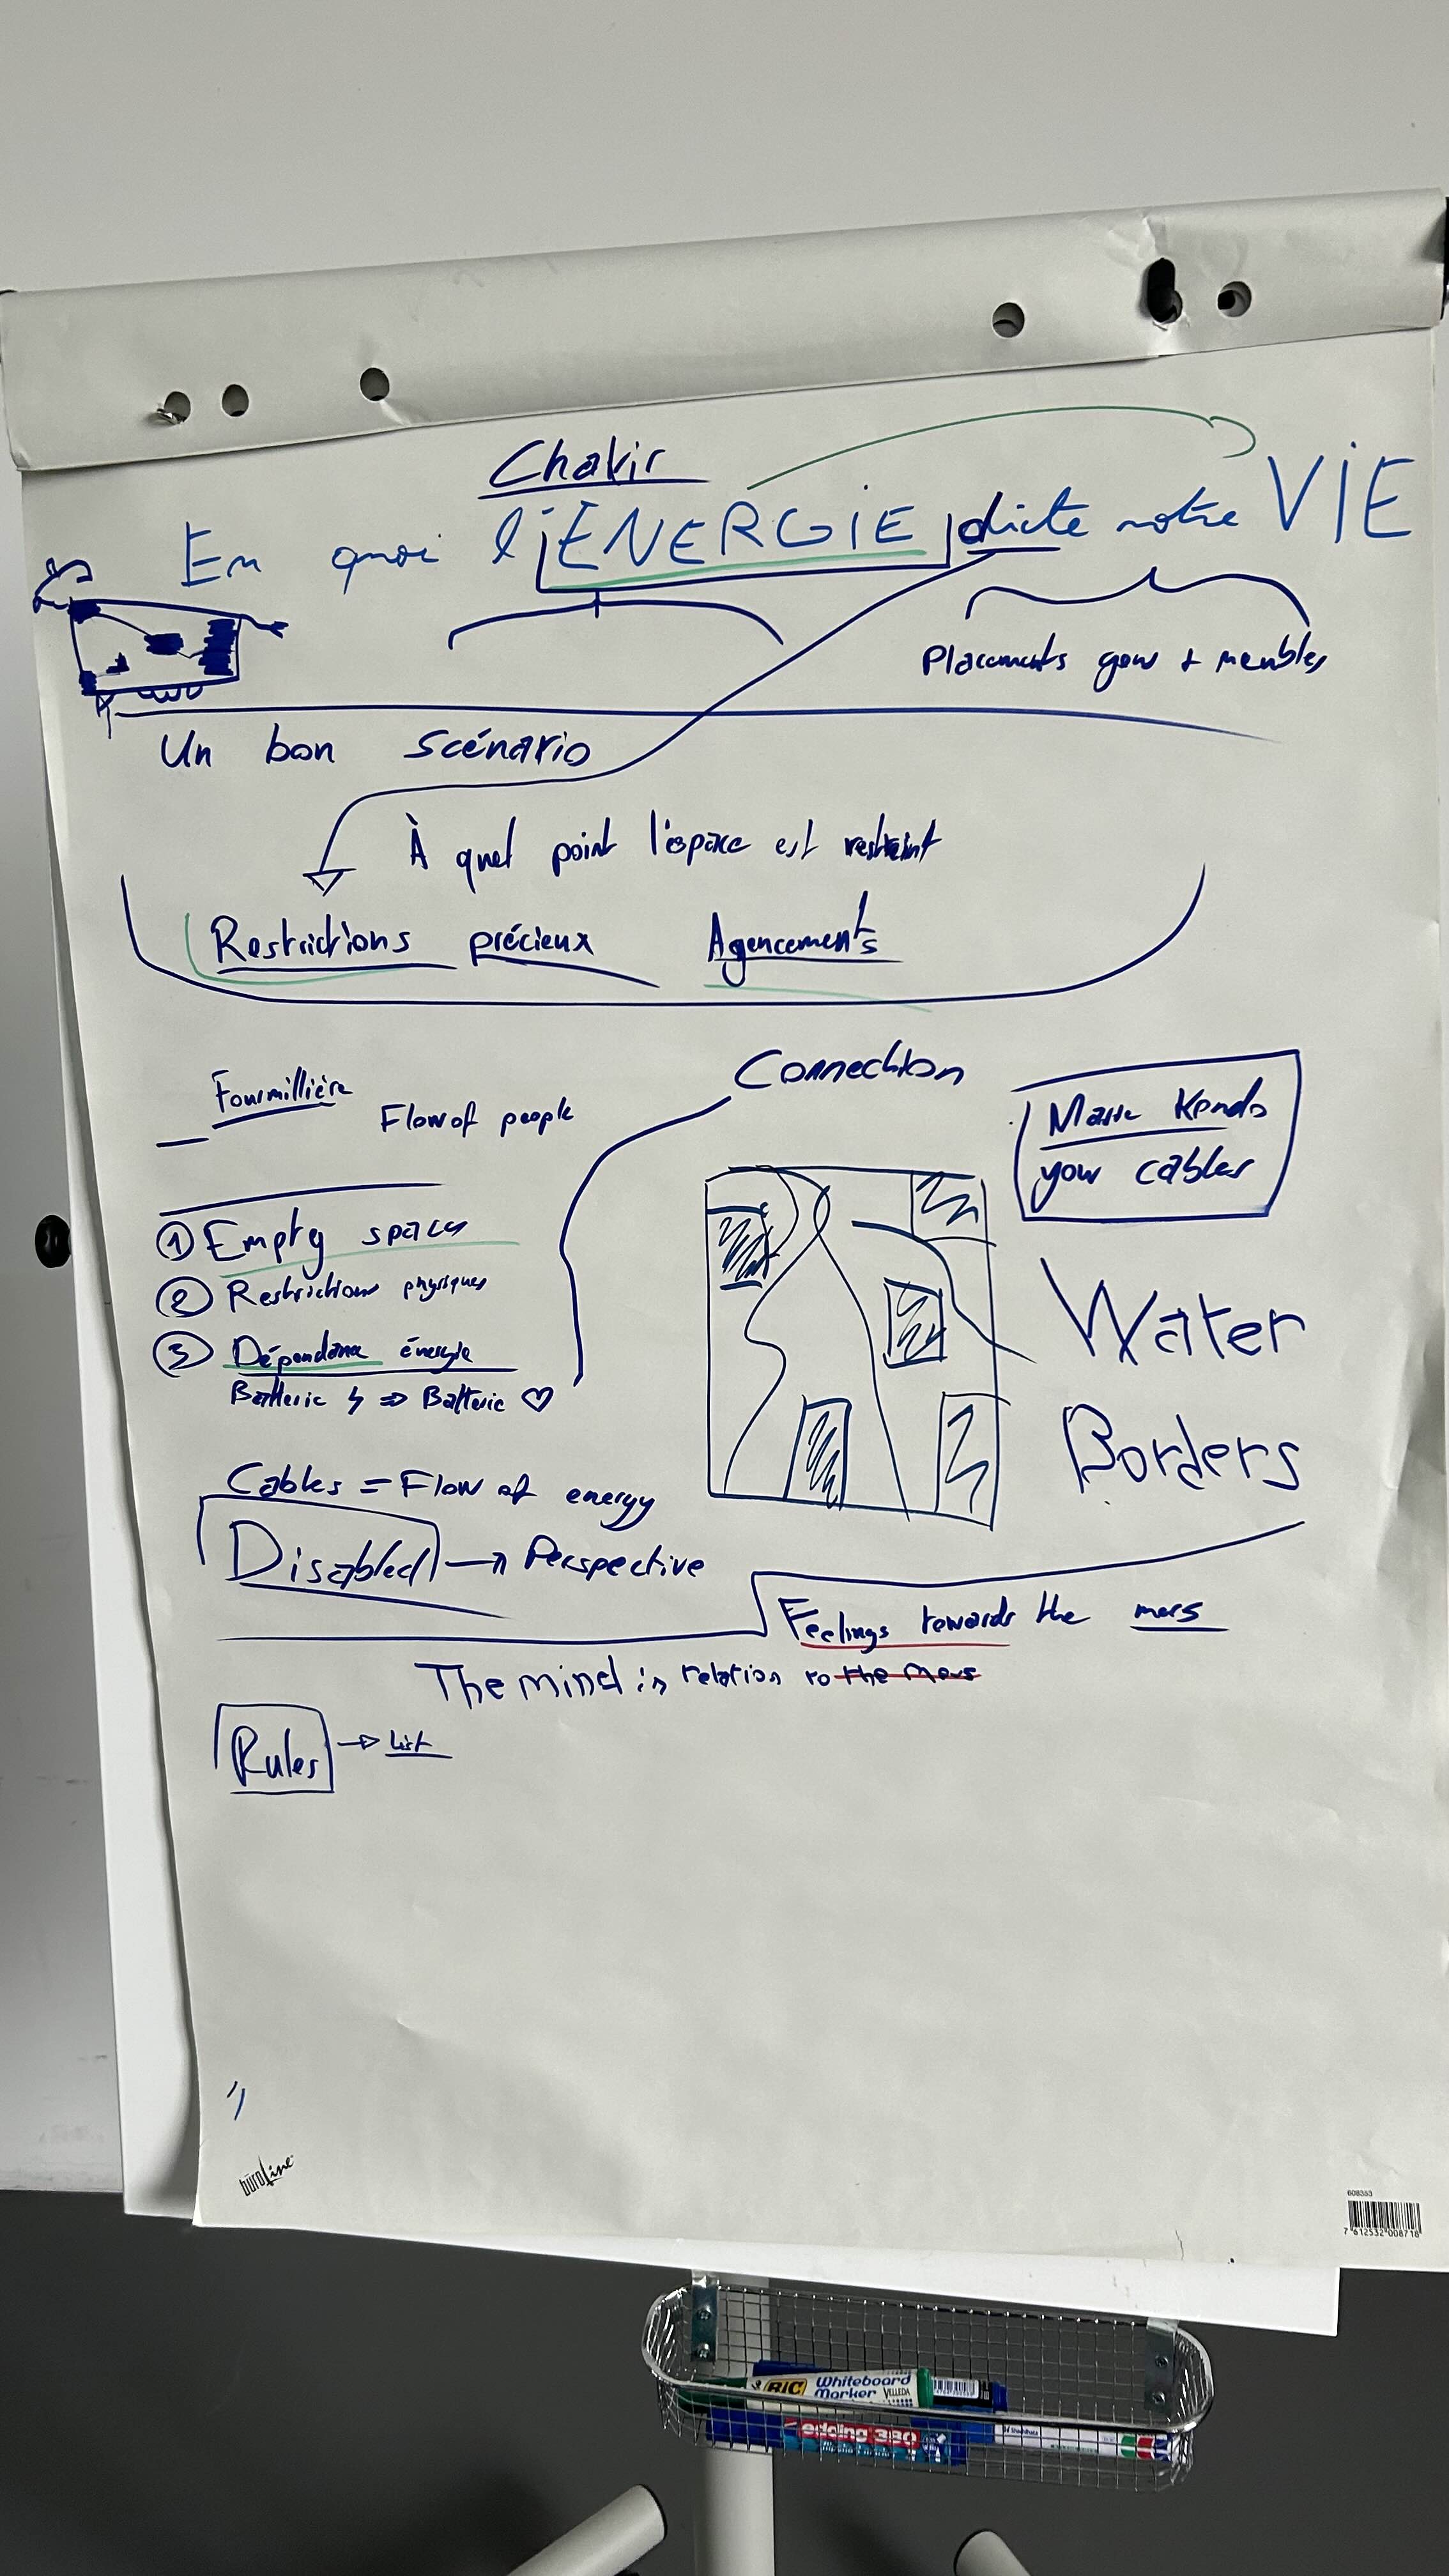 Chakir
En quoi l'ENERGIE dicte notre VIE
Placements gens + meubles
Un bon scénario
À quel point l'espace est restreint
Restrictions précieux Agencements
Fourmillière
Flow of people
Connection
Marie Kondo
your cables
① Empty spaces
② Restrictions physiques
③ Dépendance énergie
Batterie ϟ => Batterie ♡
Water
Borders
Cables = Flow of energy
Disabled → Perspective
Feelings towards the mess
The mind in relation to the mess
Rules → List
büroline
608353
7 612532 008718
BIC Whiteboard Marker VELLEDA
edding 380